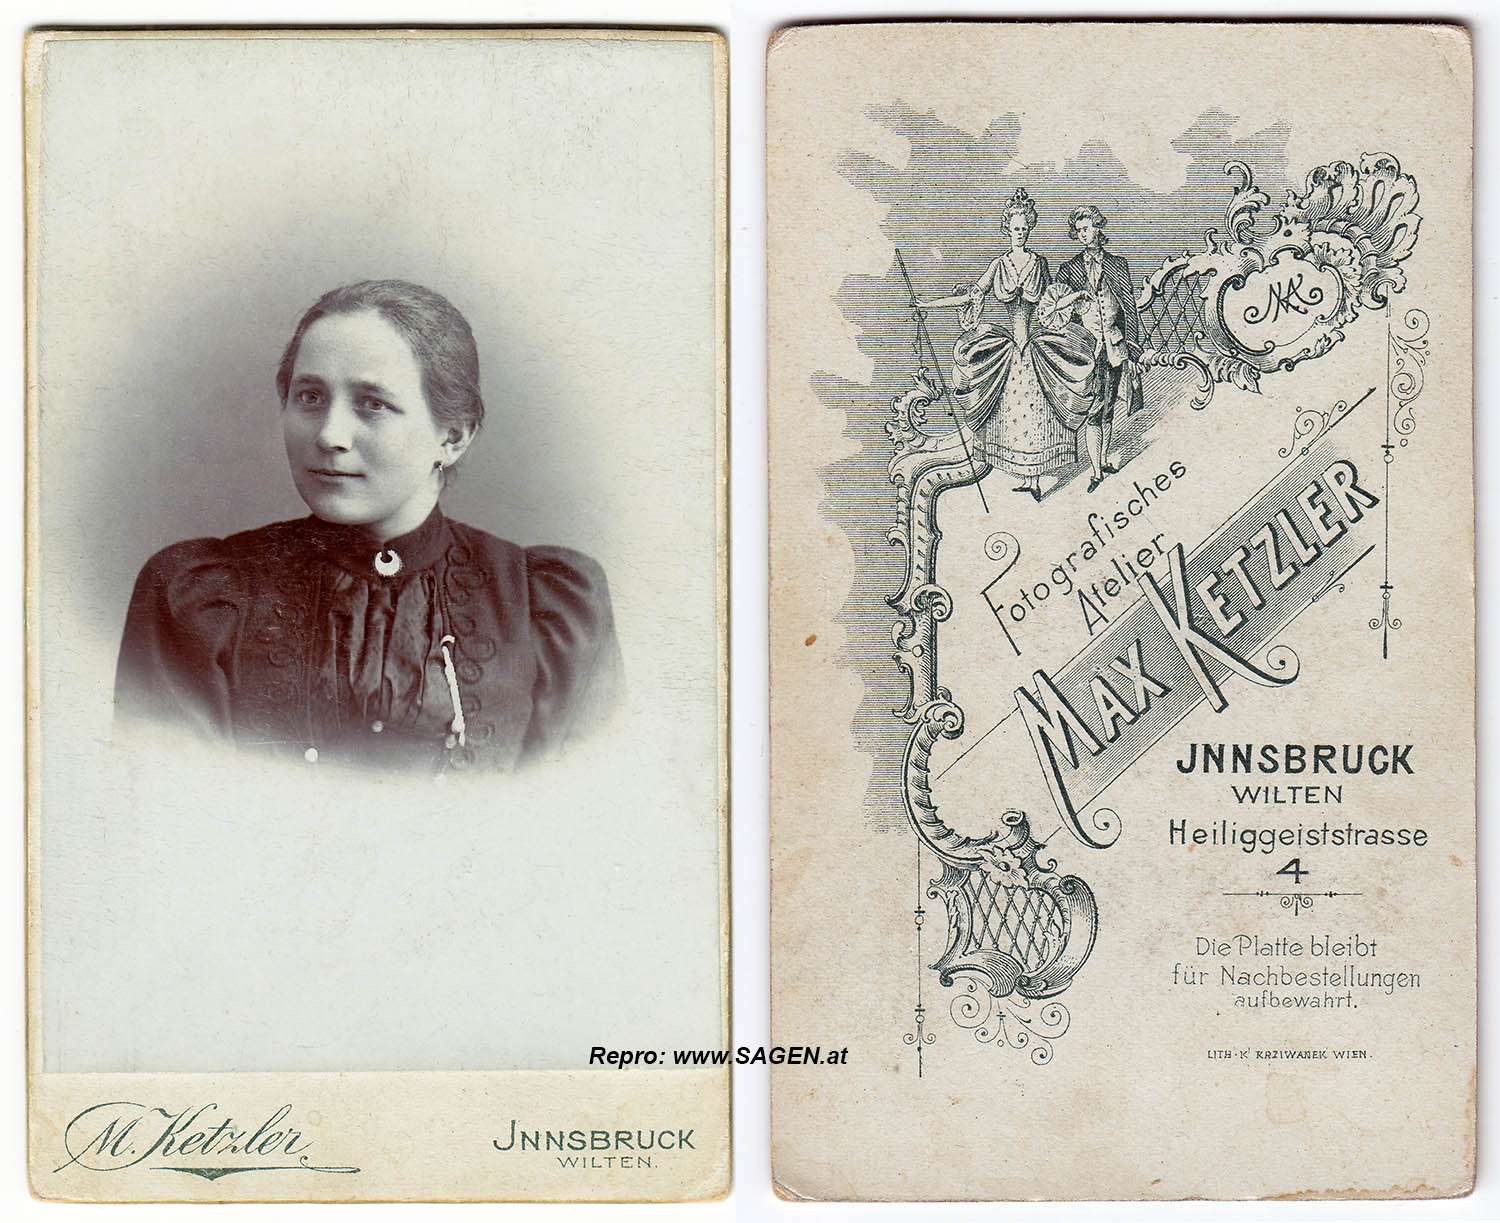 M. Ketzler
JNNSBRUCK
WILTEN.
Repro: www.SAGEN.at
Fotografisches
Atelier
MAX KETZLER
JNNSBRUCK
WILTEN
Heiliggeiststrasse
4
Die Platte bleibt
für Nachbestellungen
aufbewahrt.
LITH. K. KRZIWANEK WIEN.